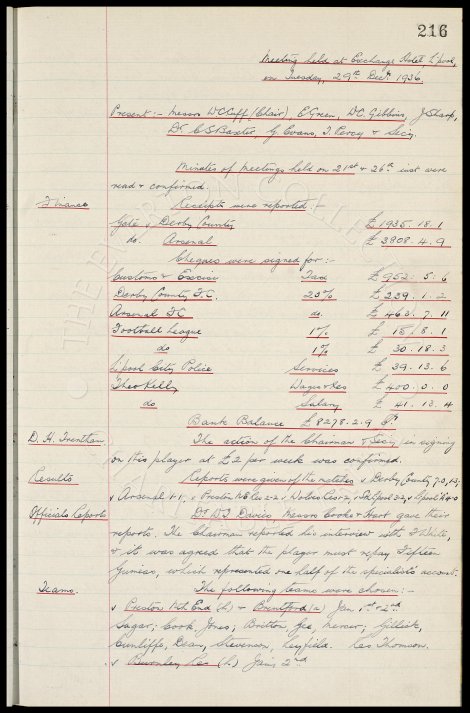 216
Meeting held at Exchange Hotel, L'pool,
on Tuesday, 29th Decr. 1936.
Present :- Messrs W.C. Cuff (Chair), E. Green, D.C. Gibbins, J. Sharp,
Dr. C.S. Baxter, G. Evans, T. Percy & Secy.
Minutes of meetings held on 21st & 26th inst were
read & confirmed.
Finance
Receipts were reported :-
Gate v Derby County £ 1935.18.1
do. Arsenal £ 3808.4.9
Cheques were signed for :-
Customs & Excise Tax £ 952.5.6
Derby County F.C. 20% £ 239.1.2
Arsenal F.C. do. £ 463.7.11
Football League 1% £ 15.8.1
do 1% £ 30.18.3
L'pool City Police Services £ 39.13.6
Theo Kelly Wages & Exs £ 400.0.0
do Salary £ 41.13.4
Bank Balance £8278.2.9
D. H. Trentham
The action of the Chairman & Secy in signing
on this player at £2 per week was confirmed.
Results
Reports were given of the matches v Derby County 7.0,
v Arsenal 1.1, v Preston N.E. Res 2.2, v Wolves Res
Officials Reports
Dr. D.J. Davies Messrs Cooke & Hoart gave their
reports. The Chairman reported his interview with J. White,
& it was agreed that the player must repay Fifteen
Guineas, which represented one half of the specialist's account.
Teams.
The following teams were chosen :-
v Preston Nth End (h) & Brentford (a) Jan. 1st & 2nd
Sagar; Cook, Jones; Britton, Gee, Mercer; Gillick,
Cunliffe, Dean, Stevenson, Leyfield. Res Thomson.
v Burnley Res (h) Jany 2nd